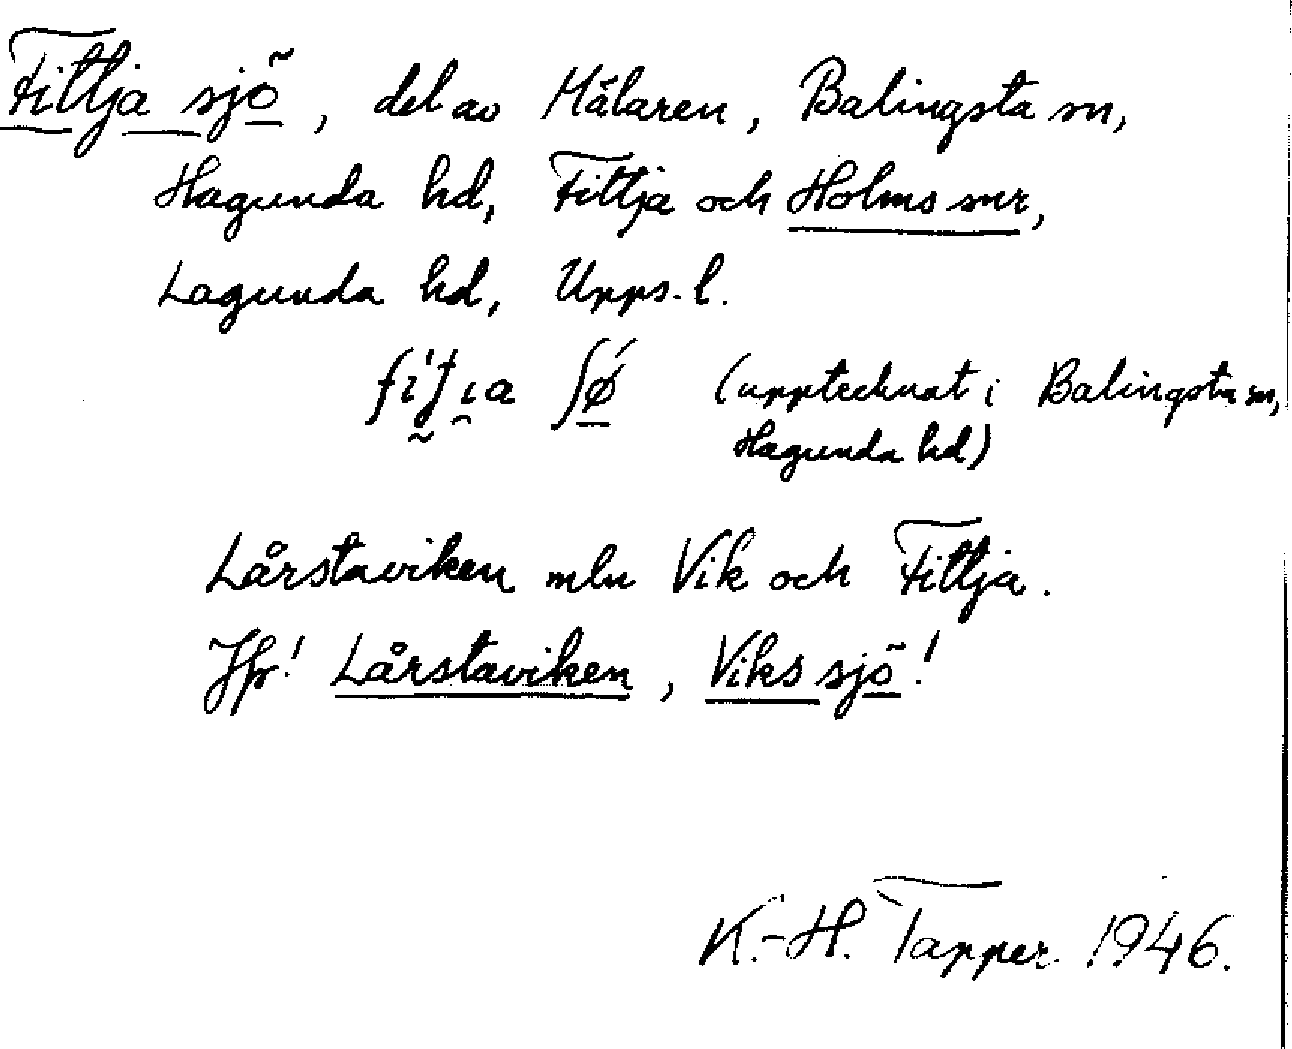 Fittja sjö, del av Mälaren, Balingsta sn,
Hagunda hd, Fittja och Holms snr,
Lagunda hd, Upps. l.
(upptecknat i Balingsta sn,
Hagunda hd)
Lårstaviken mln Vik och Fittja.
Jfr! Lårstaviken, Viks sjö!
K.-H. Tapper 1946.